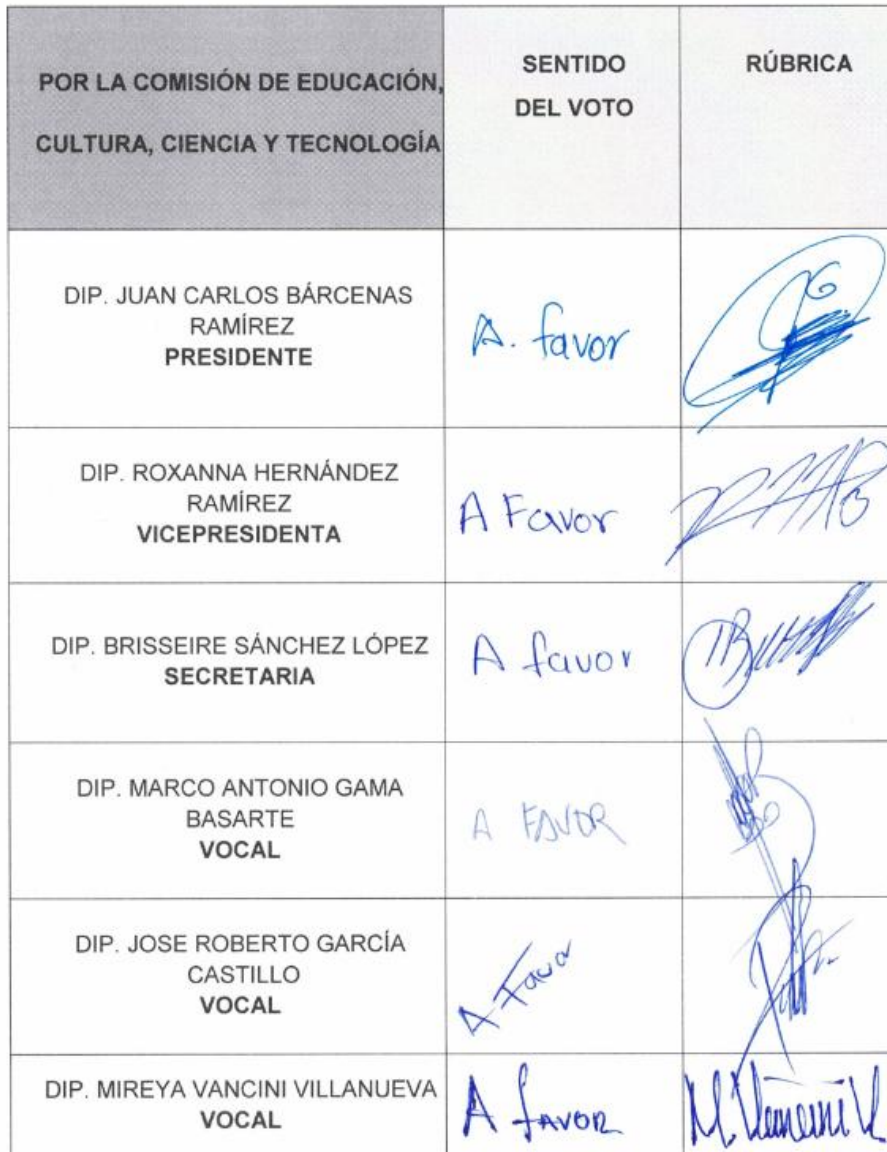 POR LA COMISIÓN DE EDUCACIÓN,
CULTURA, CIENCIA Y TECNOLOGÍA
SENTIDO
DEL VOTO
RÚBRICA
DIP. JUAN CARLOS BÁRCENAS
RAMÍREZ
PRESIDENTE
A. favor
DIP. ROXANNA HERNÁNDEZ
RAMÍREZ
VICEPRESIDENTA
A Favor
DIP. BRISSEIRE SÁNCHEZ LÓPEZ
SECRETARIA
A favor
DIP. MARCO ANTONIO GAMA
BASARTE
VOCAL
A FAVOR
DIP. JOSE ROBERTO GARCÍA
CASTILLO
VOCAL
A Favor
DIP. MIREYA VANCINI VILLANUEVA
VOCAL
A FAVOR